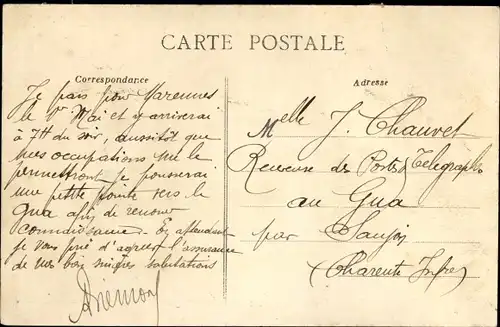 CARTE POSTALE
Correspondance
Je pars pour Varennes
le 1er Mai et y arriverai
à 7H du soir, aussitôt que
mes occupations me le
permettront je pousserai
une petite pointe vers le
Gua afin de renouer
connaissance. En attendant
je vous prie d'agréer l'assurance
de mes salutations
Adresse
Melle J. Chauvet
Receveuse des Postes Télégraphes
au Gua
par Saujon
(Charente Infre)